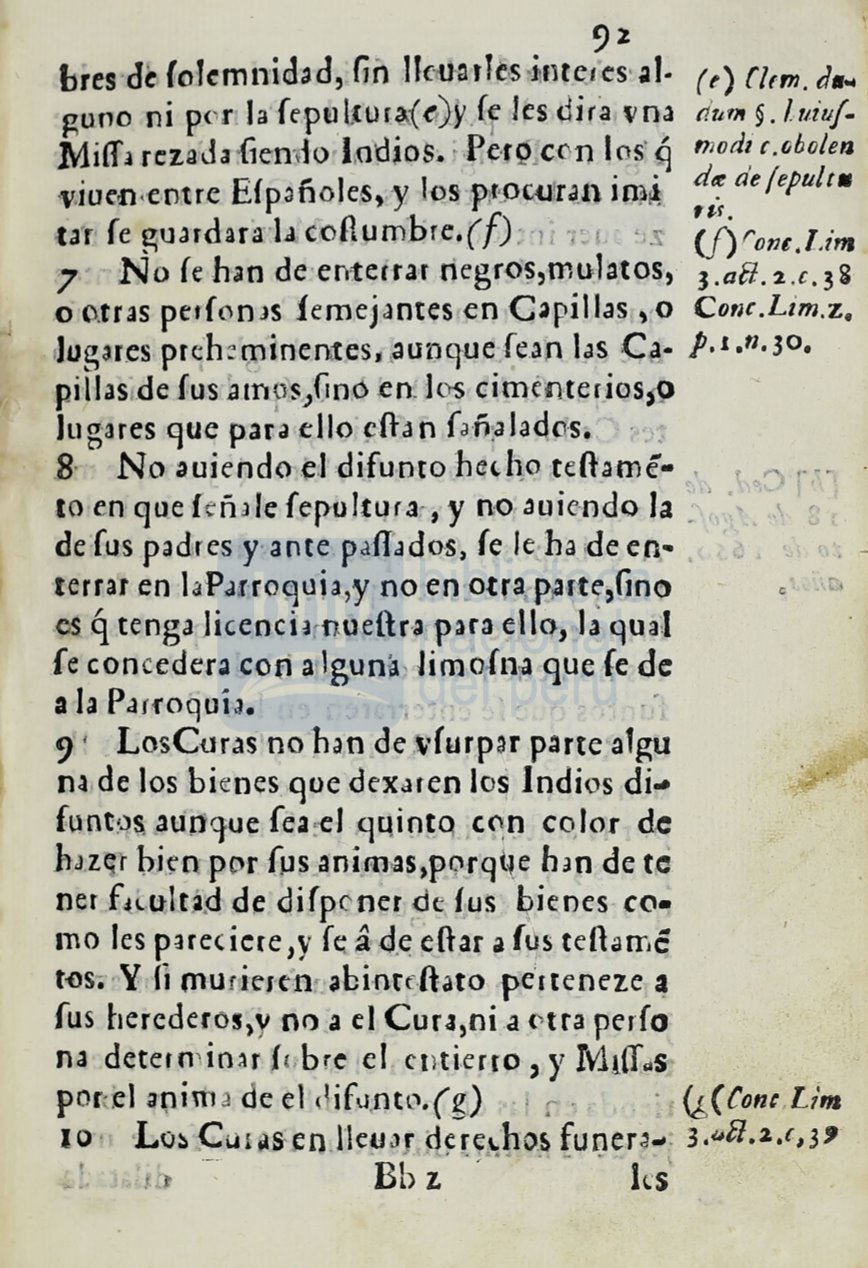 92
bres de ſolemnidad, ſin lleuarles interes al-
guno ni por la ſepultura(e)y ſe les dira vna
Miſſa rezada ſiendo Indios. Pero con los q́
viuen entre Eſpañoles, y los procuran imi
tar ſe guardara la coſtumbre.(f)
7 No ſe han de enterrar negros,mulatos,
o otras perſonas ſemejantes en Capillas , o
lugares preheminentes, aunque ſean las Ca-
pillas de ſus amos,ſino en los cimenterios,o
lugares que para ello eſtan ſañalados.
8 No auiendo el difunto hecho teſtamẽ-
to en que ſeñale ſepultura , y no auiendo la
de ſus padres y ante paſſados, ſe le ha de en-
terrar en laParroquia,y no en otra parte,ſino
es q́ tenga licencia nueſtra para ello, la qual
ſe concedera con alguna limoſna que ſe de
a la Parroquia.
9 LosCuras no han de vſurpar parte algu
na de los bienes que dexaren los Indios di-
funtos aunque ſea el quinto con color de
hazer bien por ſus animas,porque han de te
ner facultad de diſponer de ſus bienes co-
mo les pareciere,y ſe â de eſtar a ſus teſtamẽ
tos. Y ſi murieren abinteſtato perteneze a
ſus herederos,y no a el Cura,ni a otra perſo
na determinar ſobre el entierro , y Miſſas
por el anima de el difunto.(g)
10 Los Curas en lleuar derechos funera-
Bb 2 les
(e) Clem. du-
dum §. huiuſ-
modi c.obolen
dæ de ſepultu
ris.
(f)Conc.Lim
3.act.2.c.38
Conc.Lim.2.
p.1.n.30.
(g(Conc Lim
3.act.2.c,39